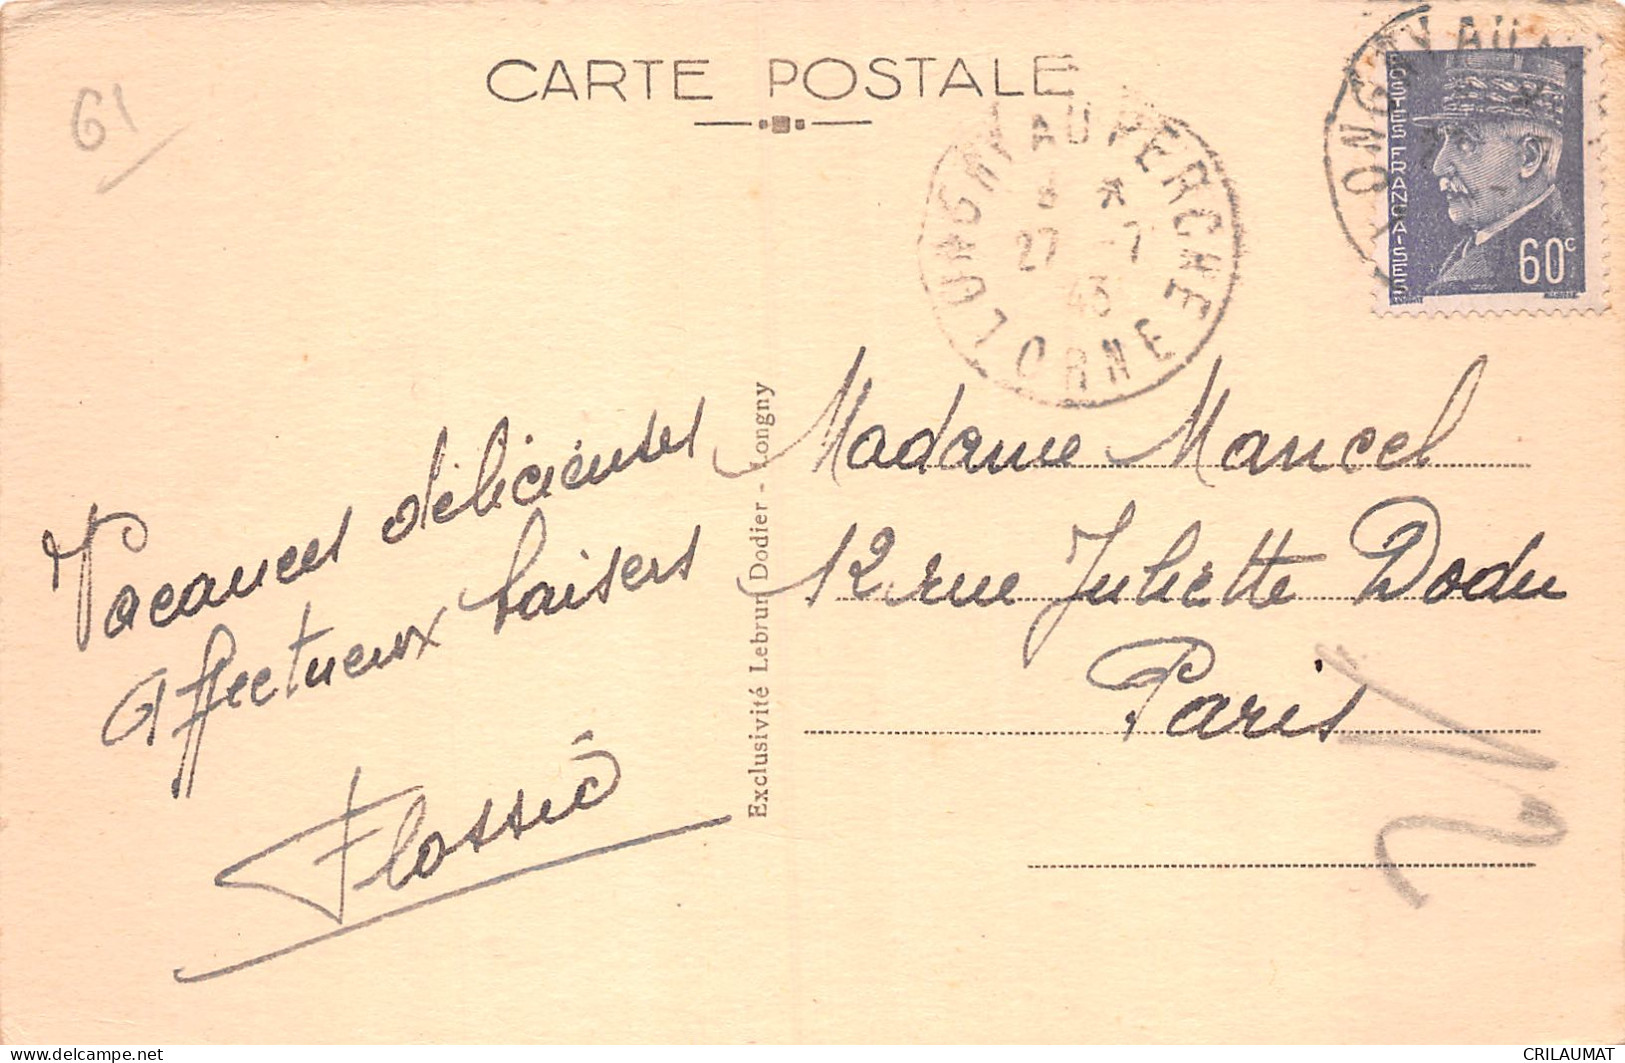 CARTE POSTALE
61
LONGNY AU PERCHE
8 *
27 -7
43
ORNE
LONGNY AU
POSTES FRANÇAISES
60c
Vacances délicieuses
Affectueux baisers
Exclusivité Lebrun Dodier - Longny
Madame Mancel
12 rue Juliette Dodu
Paris
21
delcampe.net
CRILAUMAT